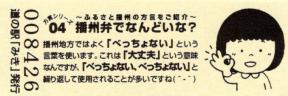 ～ふるさと播州の方言をご紹介～
方言シリーズ
'04 播州弁でなんどいな?
播州地方ではよく「べっちょない」という
言葉を使います。これは「大丈夫」という意味
なんですが、「べっちょない、べっちょない」と
繰り返して使用されることが多いですね(^-^)
008426
道の駅「みき」発行